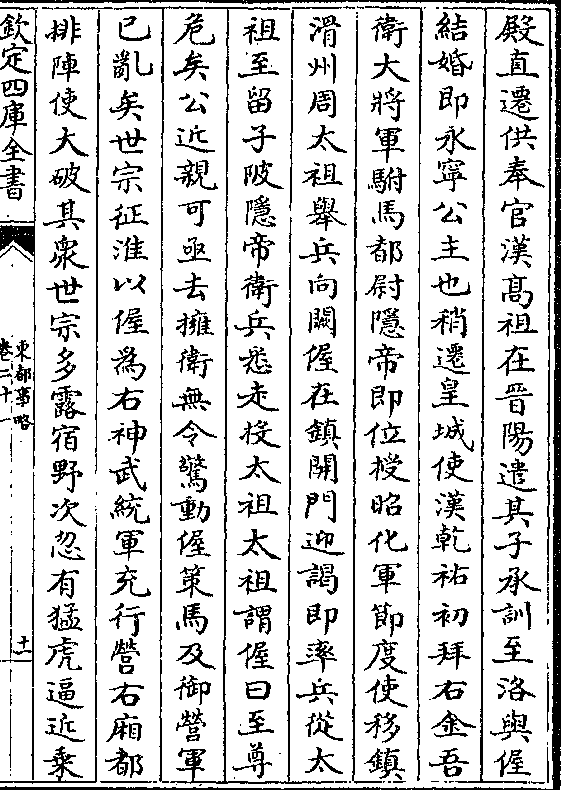 殿直遷供奉官漢髙祖在晉陽遣其子承訓至洛與偓
結婚即永寧公主也稍遷皇城使漢乾祐初拜右金吾
衛大將軍駙馬都尉隱帝即位授昭化軍節度使移鎮
滑州周太祖舉兵向闕偓在鎮開門迎謁即率兵從太
祖至留子陂隱帝衛兵悉走投太祖太祖謂偓曰至尊
危矣公近親可亟去擁衛無令驚動偓策馬及御營軍
已亂矣世宗征淮以偓為右神武統軍充行營右廂都
排陣使大破其衆世宗多露宿野次忽有猛虎逼近乗
欽定四庫全書
東都事略
卷二十一
十一